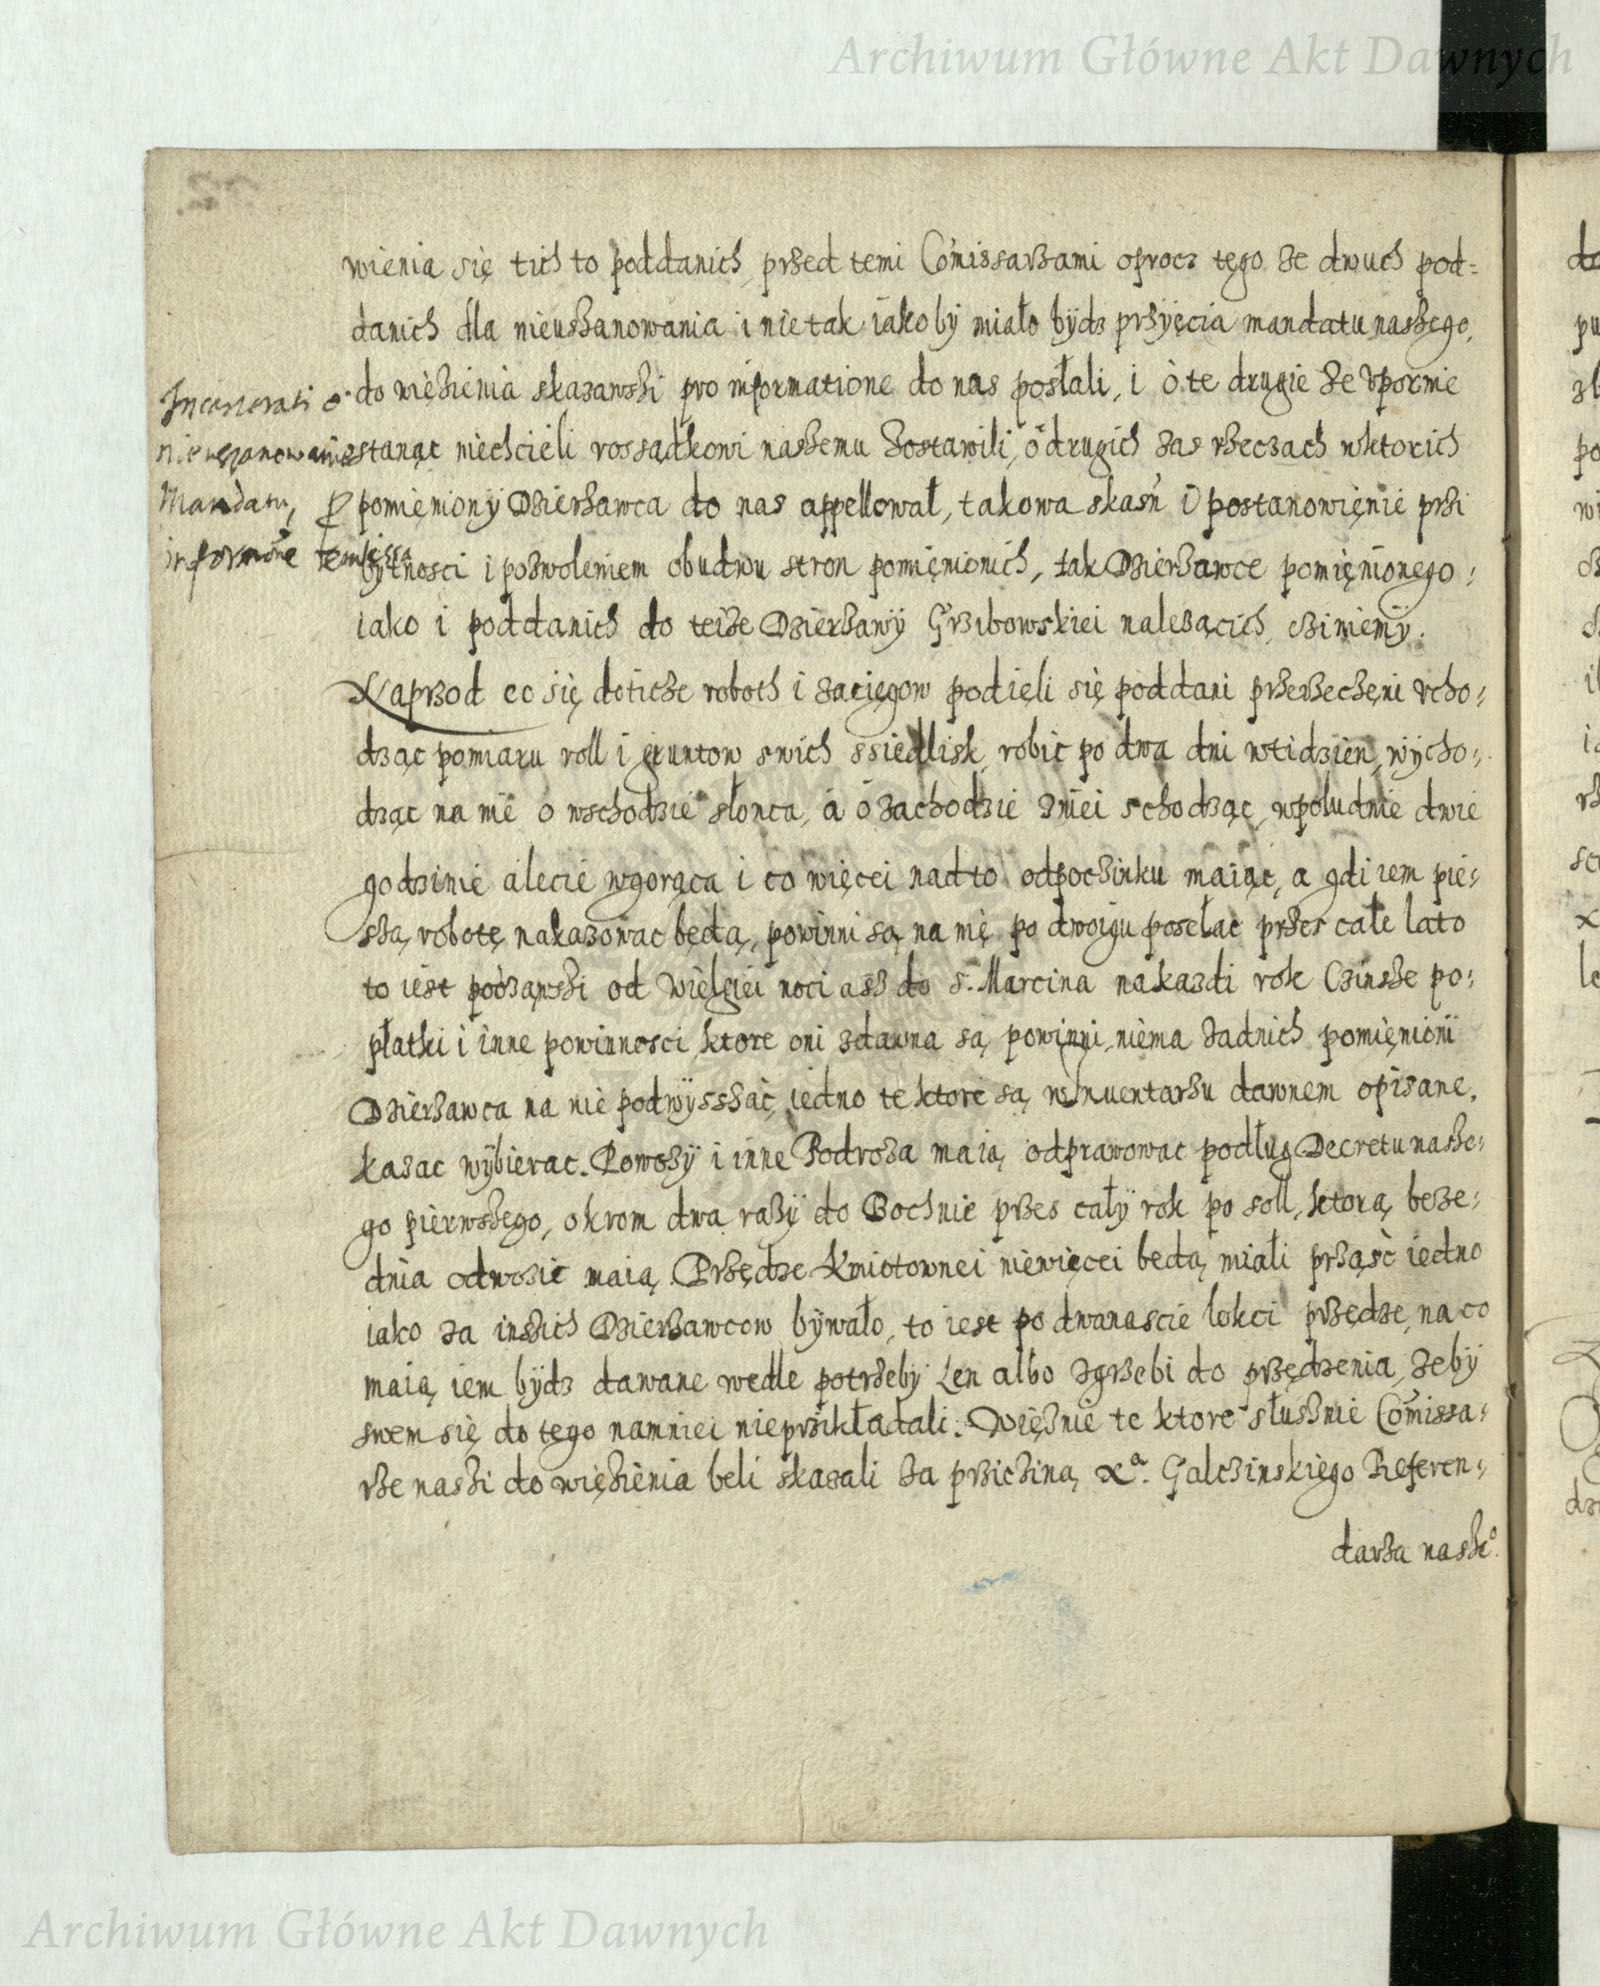 Archiwum Główne Akt Dawnych
wienia się tich to poddanich przed temi Comissarzami oprocz tęgo ze dwuch pod=
danich dla nieuszanowania i nie tak iako by miało bydz przyięcia mandatu naszego,
do więzienia skazawszi pro informatione do nas posłali, i o te drugie ze vpornie
stanąc niechcieli rossądkowi naszemu zostawili, o drugich zas rzeczach wktorich
pomięniony Dzierzawca do nas appellował, takowa skasń i postanowięnie przi
bytnosci i pozwoleniem obudwu stron pomięnionich, tak Dzierzawce pomięnionego,
iako i poddanich do teize Dzierzawy Grzibowskiei nalezącich czinięmy.
Incarcerati o
nieuszanowanie
Mandatu,
informatione remissa
Naprzod co się doticze roboth i zacięgow podieli się poddani przerzeczęni vcho=
dząc pomiaru roll i gruntow swich ssiedlisk, robic po dwa dni wtidzien, wycho=
dząc na nię o wschodzie słonca, a o zachodzie zniei schodząc, wpołudnie dwie
godzinie a lecie wgorąca i co więcei nadto odpoczinku maiąc, a gdi iem pie=
szą robotę nakazowac będą, powinni są na nię po dwoigu poselac przes całe lato
to iest począwszi od wielgiei noci asz do s. Marcina na kazdi rok Czinsze po=
płatki i inne powinnosci ktore oni zdawna są powinni, niema zadnich pomięnioni
Dzierzawca na nie podwysszac, iedno te ktore są wInuentarzu dawnem opisane,
kazac wybierac. Powozy i inne Podroza maią odprawowac podług Decretu nasze=
go pierwszego, okrom dwa razy do Bochnie przes cały rok po soll, ktorą beze=
dnia odwozic maią. Przędze Kmiotownei niewięcei będą miali prząsc iedno
iako za inszich Dzierzawcow bywało, to iest po dwanascie lokci przędze, na co
maią iem bydz dawane wedle potrzeby Len albo zgrzebi do przędzenia, zeby
swem się do tego namniei nieprzikładali. Więznie te ktore słusznie Comissa=
rze naszi do więzienia beli skazali za prziczina Xa. Galczinskiego Referen=
darza nasze°.
Archiwum Główne Akt Dawnych